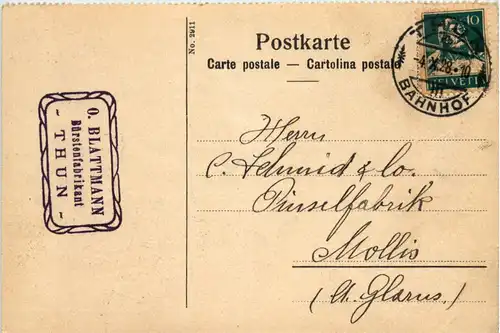 No. 2911
Postkarte
Carte postale — Cartolina postale
10
HELVETIA
BAHNHOF
O. BLATTMANN
Bürstenfabrikant
- THUN -
Herrn
C. Schmid & Co.
Pinselfabrik
Mollis
(Ct. Glarus.)